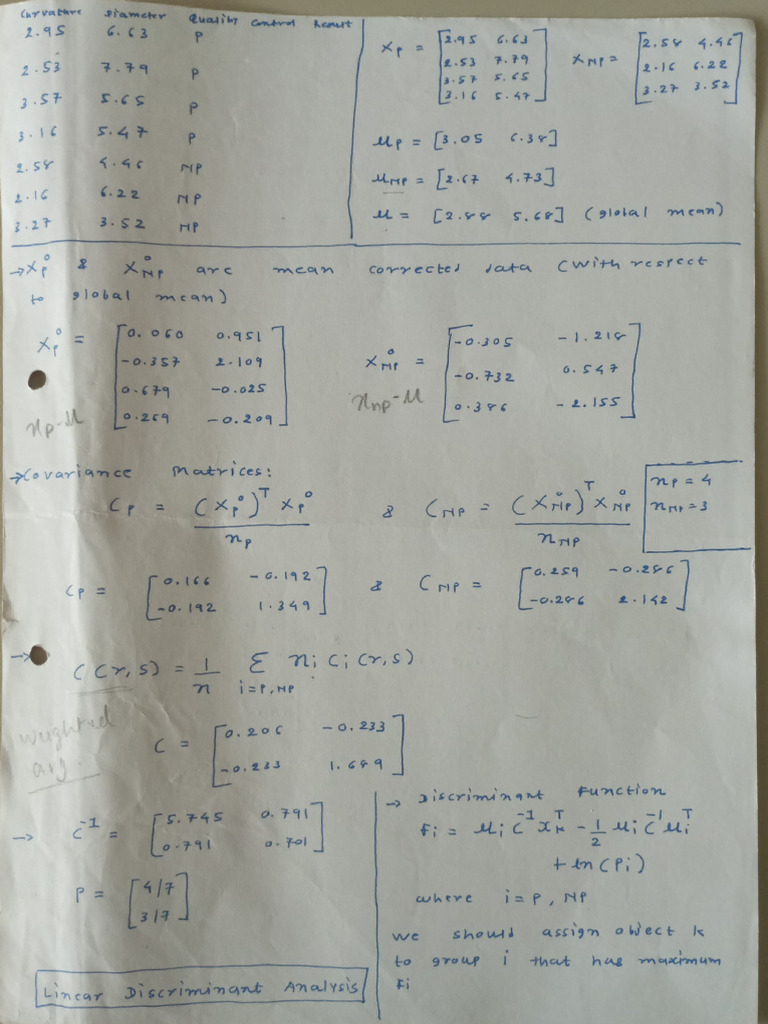 Curvature Diameter Quality Control Result
2.95 6.63 P
2.53 7.79 P
3.57 5.65 P
3.16 5.47 P
2.58 4.46 NP
2.16 6.22 NP
3.27 3.52 NP
X_P = [2.95 6.63
2.53 7.79
3.57 5.65
3.16 5.47]
X_NP = [2.58 4.46
2.16 6.22
3.27 3.52]
μ_P = [3.05 6.38]
μ_NP = [2.67 4.73]
μ = [2.88 5.68] (global mean)
→ X_P° & X_NP° are mean corrected data (with respect
to global mean)
X_P° = [0.060 0.951
-0.357 2.109
0.679 -0.025
0.269 -0.209]
x_P-μ
X_NP° = [-0.305 -1.218
-0.732 0.547
0.386 -2.155]
x_np-μ
→ Covariance Matrices:
C_P = (X_P°)^T X_P° / n_P & C_NP = (X_NP°)^T X_NP° / n_NP
n_P = 4
n_NP = 3
C_P = [0.166 -0.192
-0.192 1.349]
& C_NP = [0.259 -0.286
-0.286 2.142]
→ C(r,s) = 1/n Σ_{i=P,NP} n_i C_i (r,s)
weighted
avg.
C = [0.206 -0.233
-0.233 1.689]
→ C^-1 = [5.745 0.791
0.791 0.701]
P = [4/7
3/7]
Linear Discriminant Analysis
→ Discriminant Function
F_i = μ_i C^-1 x_k^T - 1/2 μ_i C^-1 μ_i^T
+ ln(P_i)
where i = P, NP
We should assign object k
to group i that has maximum
F_i